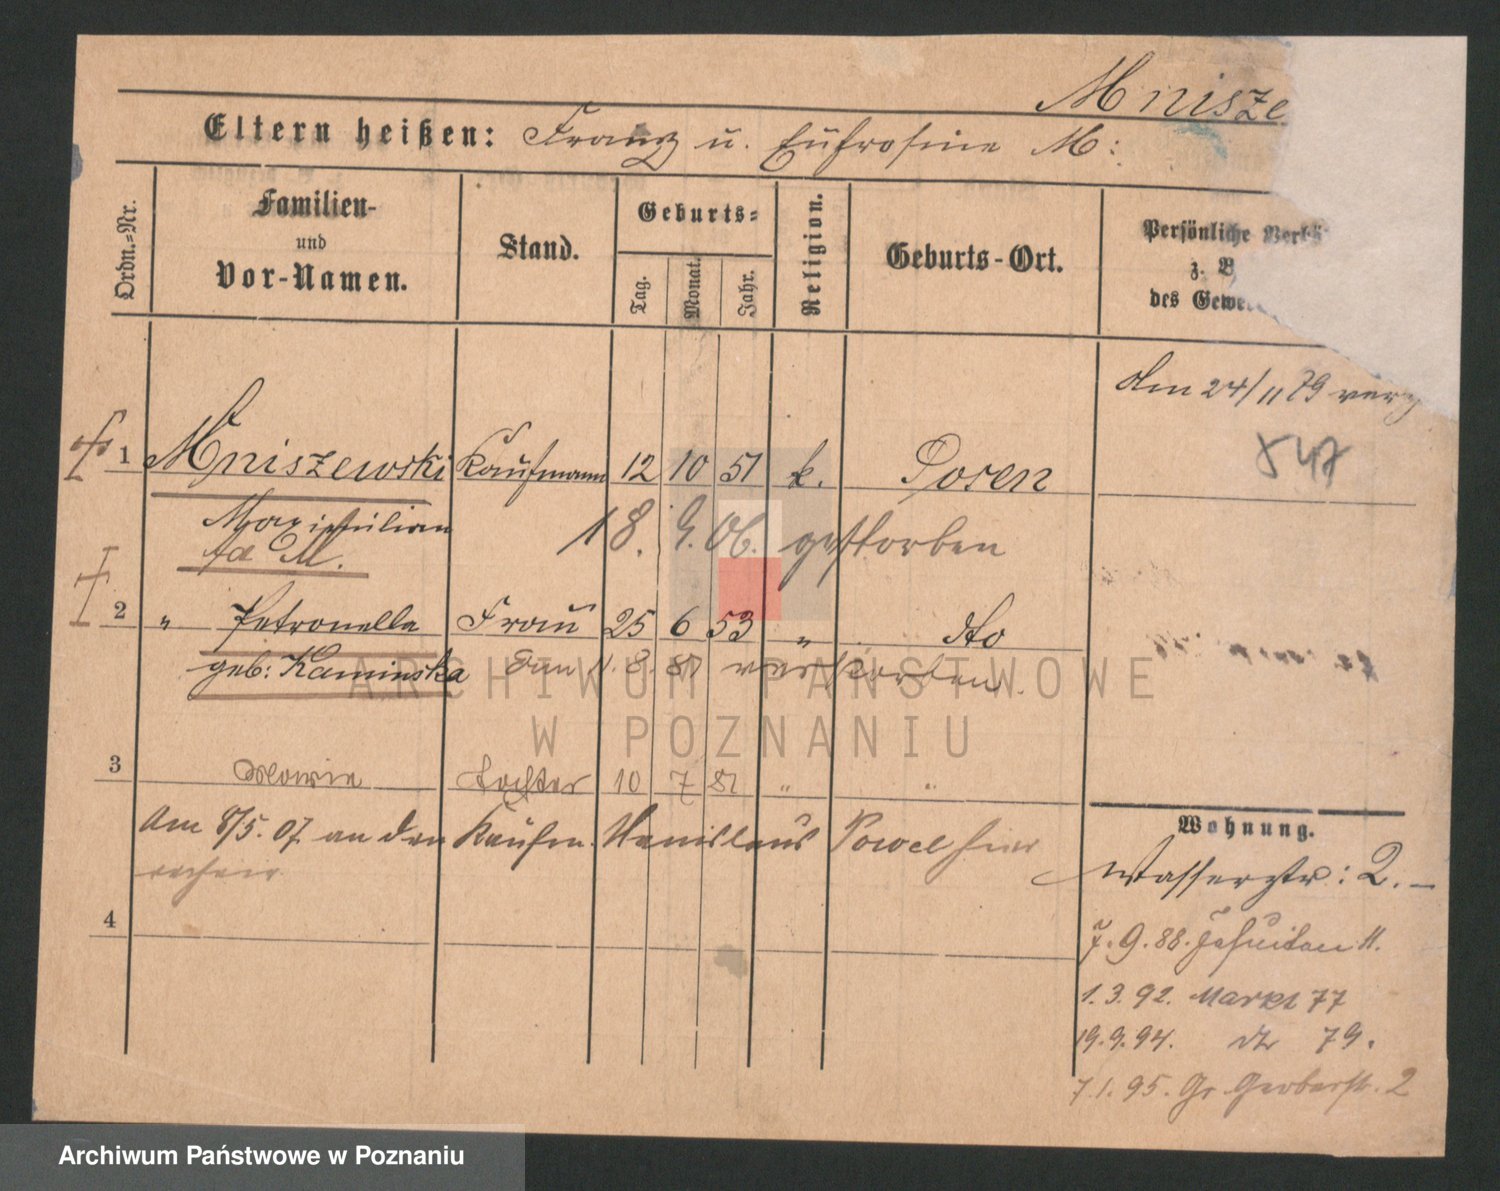 Mnisze
Eltern heißen: Franz u. Eufrosine M:
Ordn.=Nr.
Familien-
und
Vor-Namen.
Stand.
Geburts=
Tag.
Monat.
Jahr.
Religion.
Geburts-Ort.
Persönliche
z. B
des Gewe
den 24/11 79
1 Mniszewski Kaufmann 12 10 51 k. Posen
847
Maximilian 18. 9. 06. gestorben
2 " Petronella Frau 25 6 53 " dto
geb: Kaminska den 11. 8. 81 verstorben.
ARCHIWUM PAŃSTWOWE
W POZNANIU
3 Marie Tochter 10 7 81 " "
Am 8/5. 07 an den Kaufm. Stanislaus Pawel hier
4
Wohnung.
Wasserstr: 2.-
7. 9. 88. Jesuiten 11.
1. 3. 92. Markt 77
19. 9. 94. dto 79.
7. 1. 95. Gr. Gerberstr. 2
Archiwum Państwowe w Poznaniu